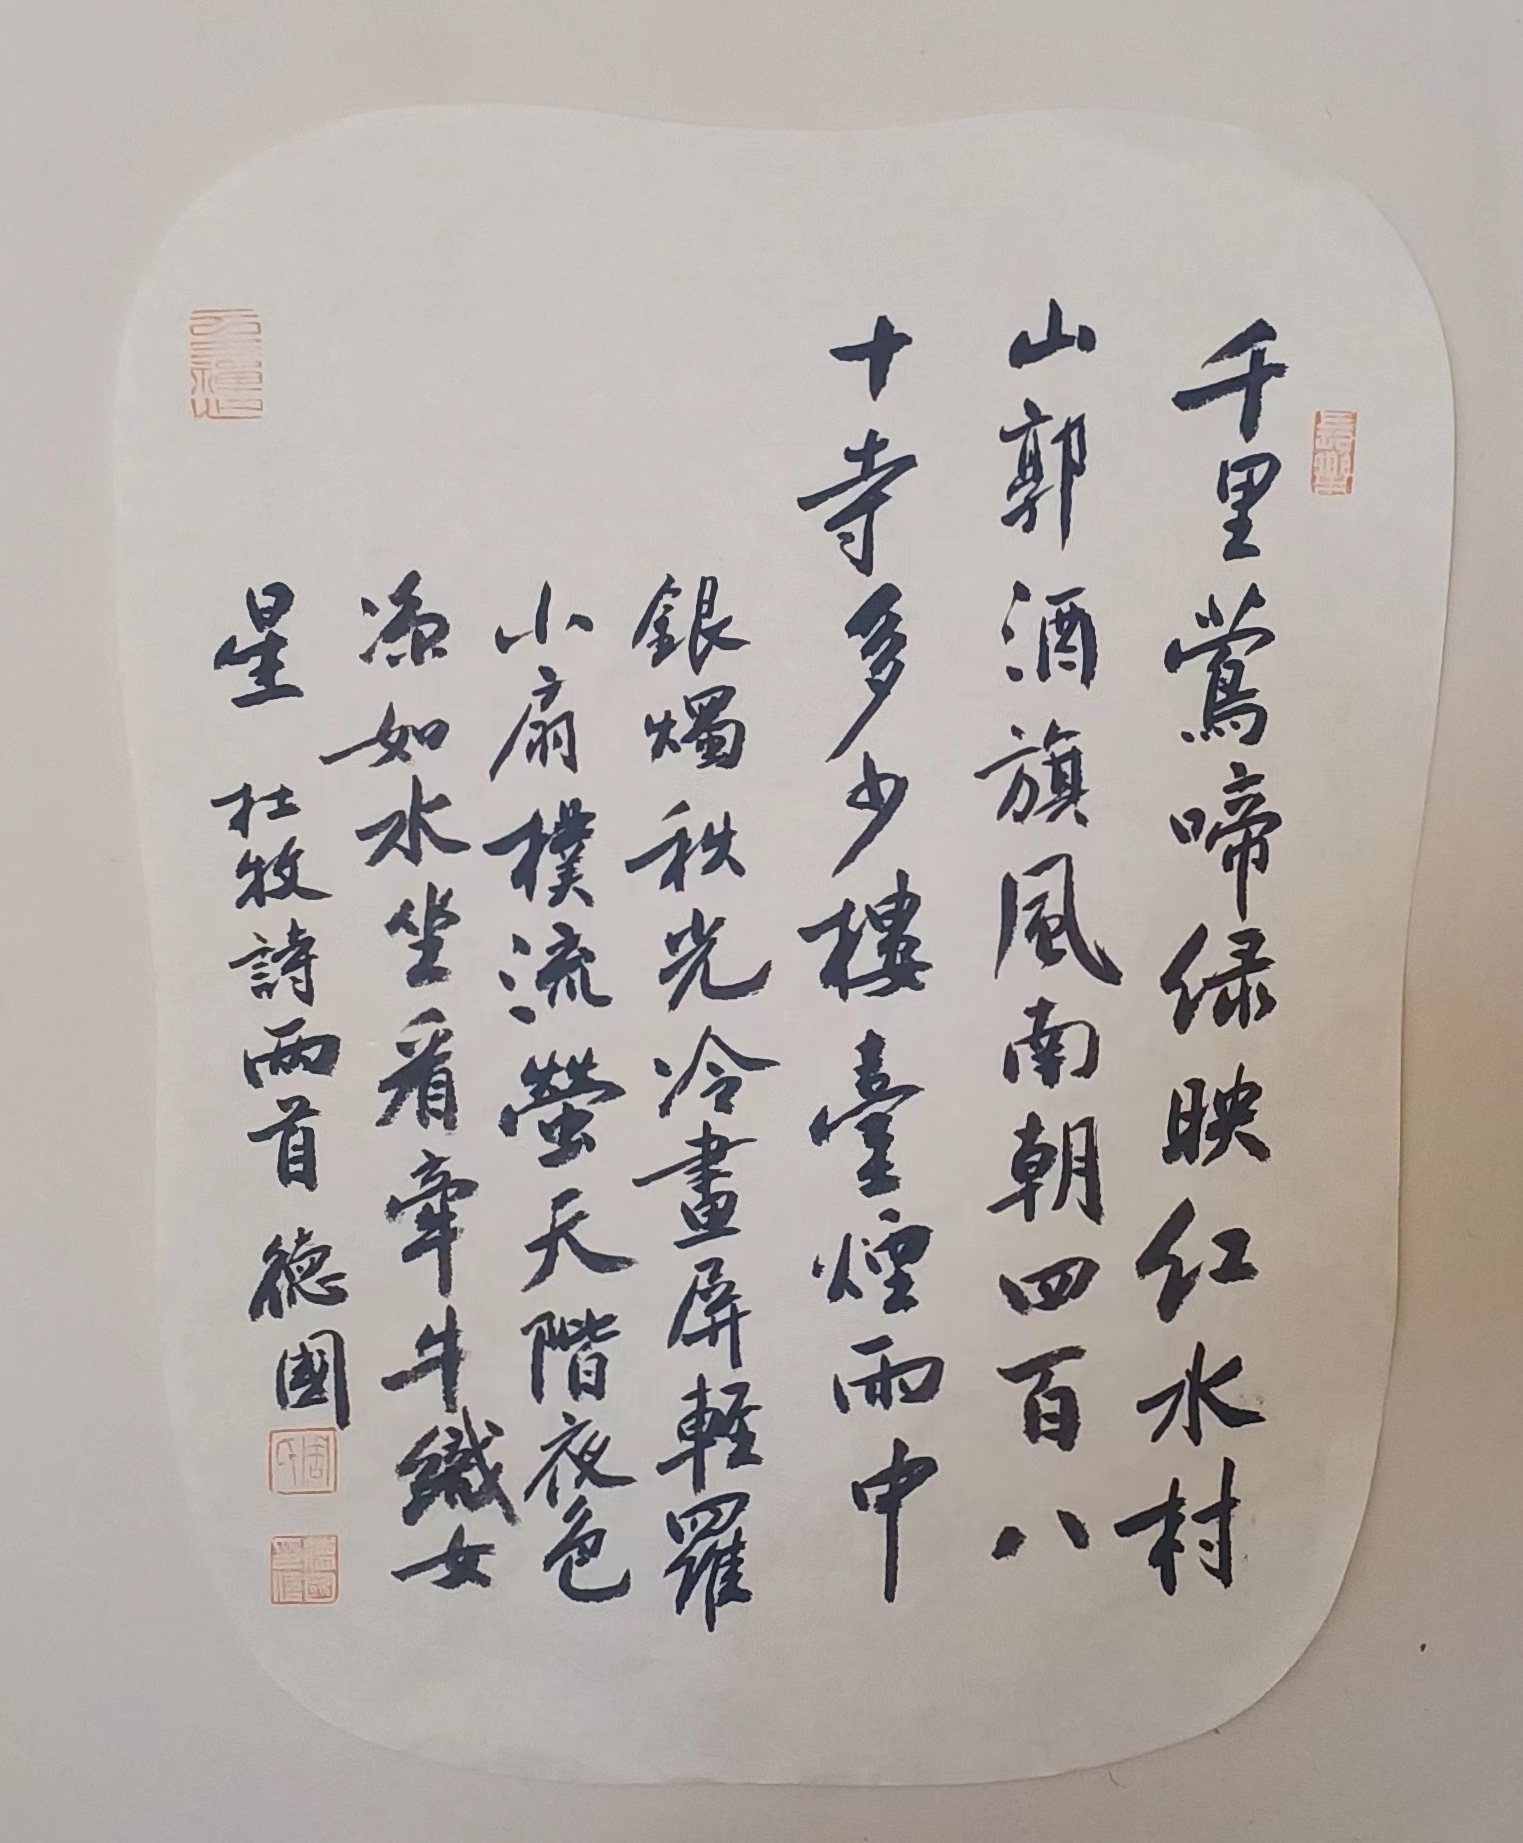 長樂
千里鶯啼绿映红水村
山郭酒旗風南朝四百八
十寺多少樓臺煙雨中
銀燭秋光冷畫屏輕羅
小扇樸流螢天階夜色
凉如水坐看牽牛織女
星 杜牧詩兩首 德國
周氏